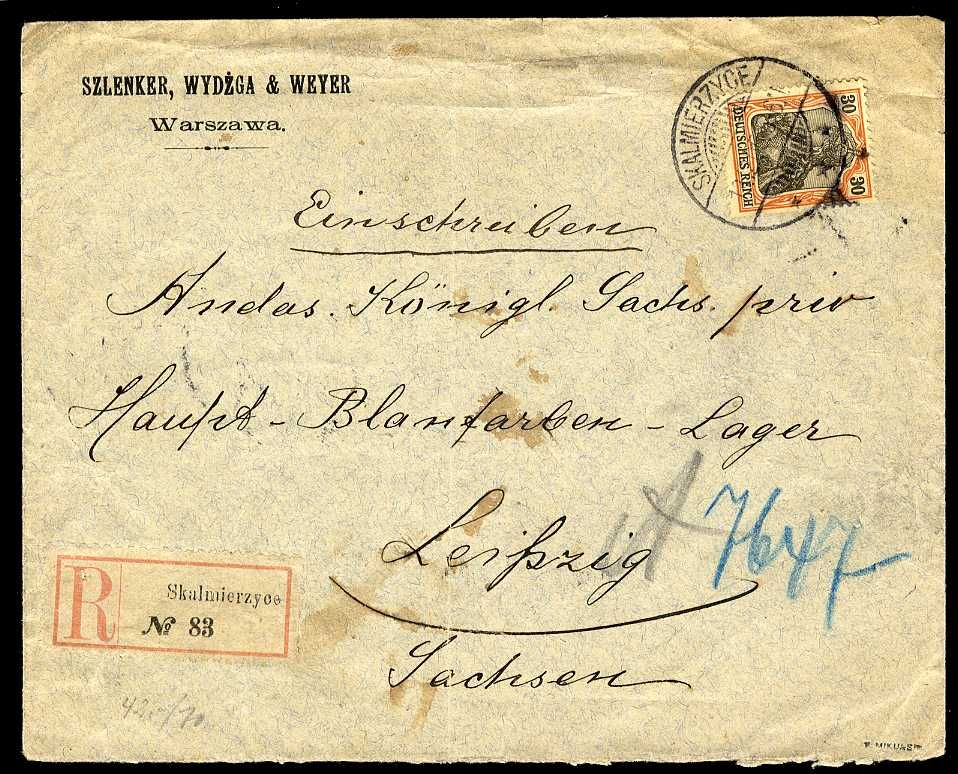 SZLENKER, WYDŻGA & WEYER
Warszawa.
SKALMIERZYCE
30 30
DEUTSCHES REICH
Einschreiben
An das. Königl. Sächs. priv
Haupt - Blaufarben - Lager
Leipzig
Sachsen
7647
R
Skalmierzyce
№ 83